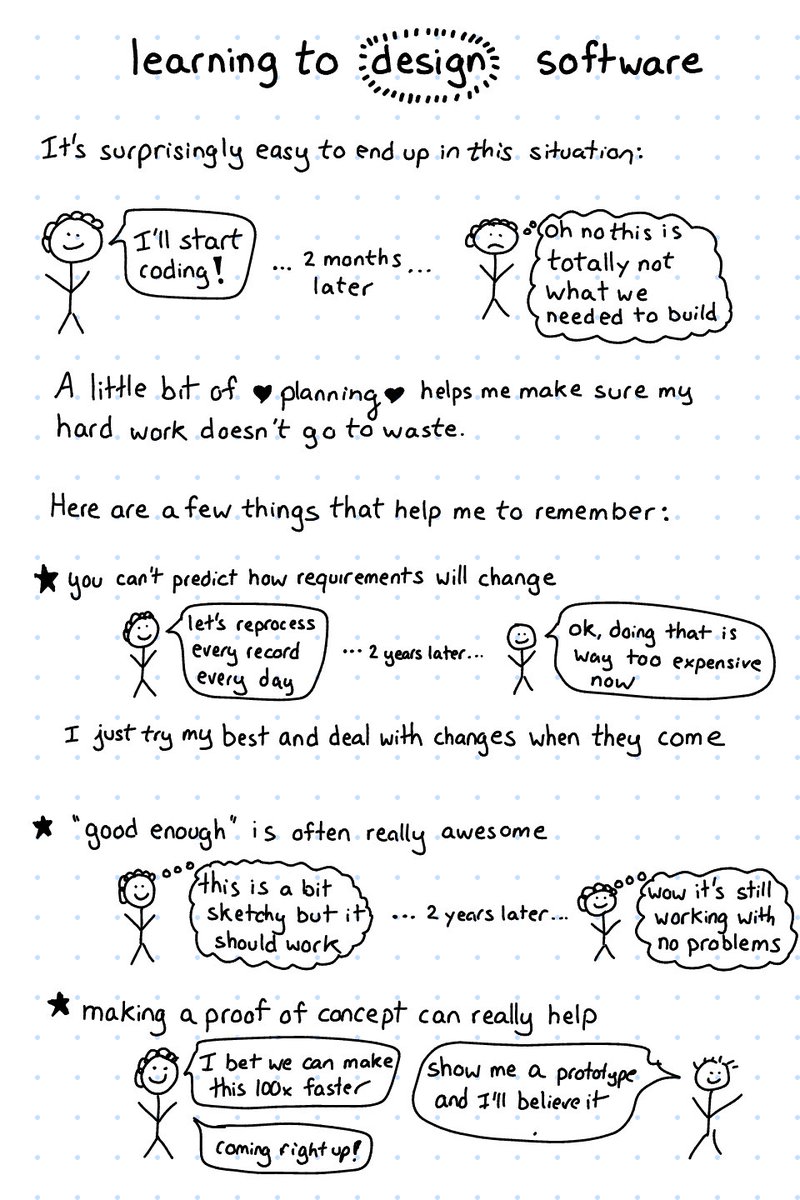 learning to design software
It's surprisingly easy to end up in this situation:
I'll start
coding!
... 2 months ...
later
oh no this is
totally not
what we
needed to build
A little bit of ♥ planning ♥ helps me make sure my
hard work doesn't go to waste.
Here are a few things that help me to remember:
★ you can't predict how requirements will change
let's reprocess
every record
every day
... 2 years later...
ok, doing that is
way too expensive
now
I just try my best and deal with changes when they come
★ "good enough" is often really awesome
this is a bit
sketchy but it
should work
... 2 years later...
wow it's still
working with
no problems
★ making a proof of concept can really help
I bet we can make
this 100x faster
show me a prototype
and I'll believe it
coming right up!